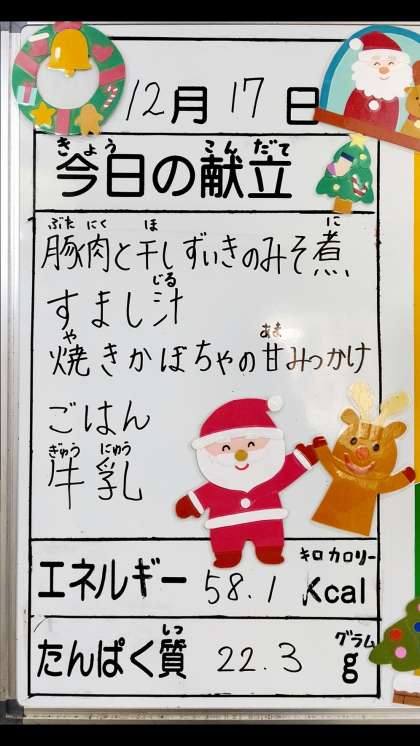 12月17日
きょう こんだて
今日の献立
ぶた にく ほ に
豚肉と干しずいきのみそ煮
じる
すまし汁
や あま
焼きかぼちゃの甘みつかけ
ごはん
ぎゅう にゅう
牛乳
キロカロリー
エネルギー 58.1 Kcal
しつ グラム
たんぱく質 22.3 g